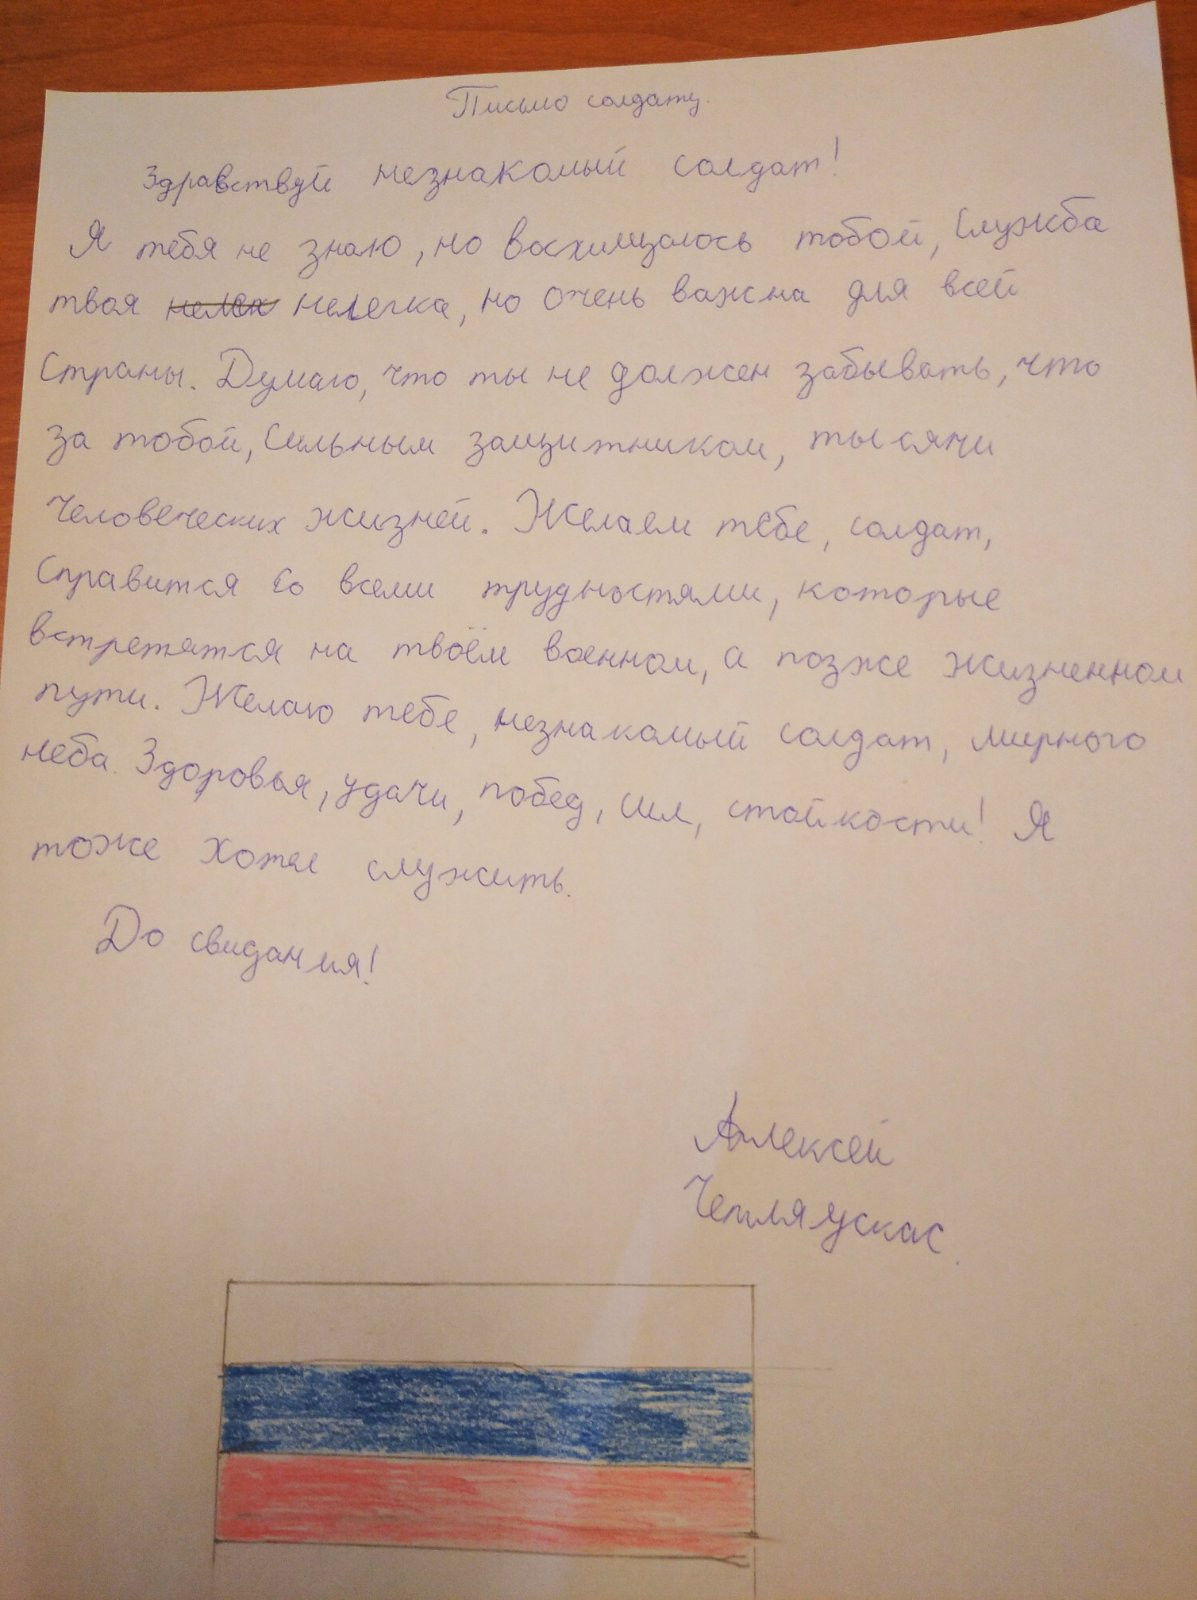 Письмо солдату.
Здравствуй незнакомый солдат!
Я тебя не знаю, но восхищаюсь тобой, Служба
твоя нелегка, но очень важна для всей
Страны. Думаю, что ты не должен забывать, что
за тобой, Сильным защитником, тысячи
Человеческих жизней. Желаем тебе, солдат,
Справится Со всеми трудностями, которые
встретятся на твоём военном, а позже жизненном
пути. Желаю тебе, незнакомый солдат, мирного
неба. Здоровья, удачи, побед, сил, стойкости! Я
тоже хотел служить.
До свидания!
Алексей